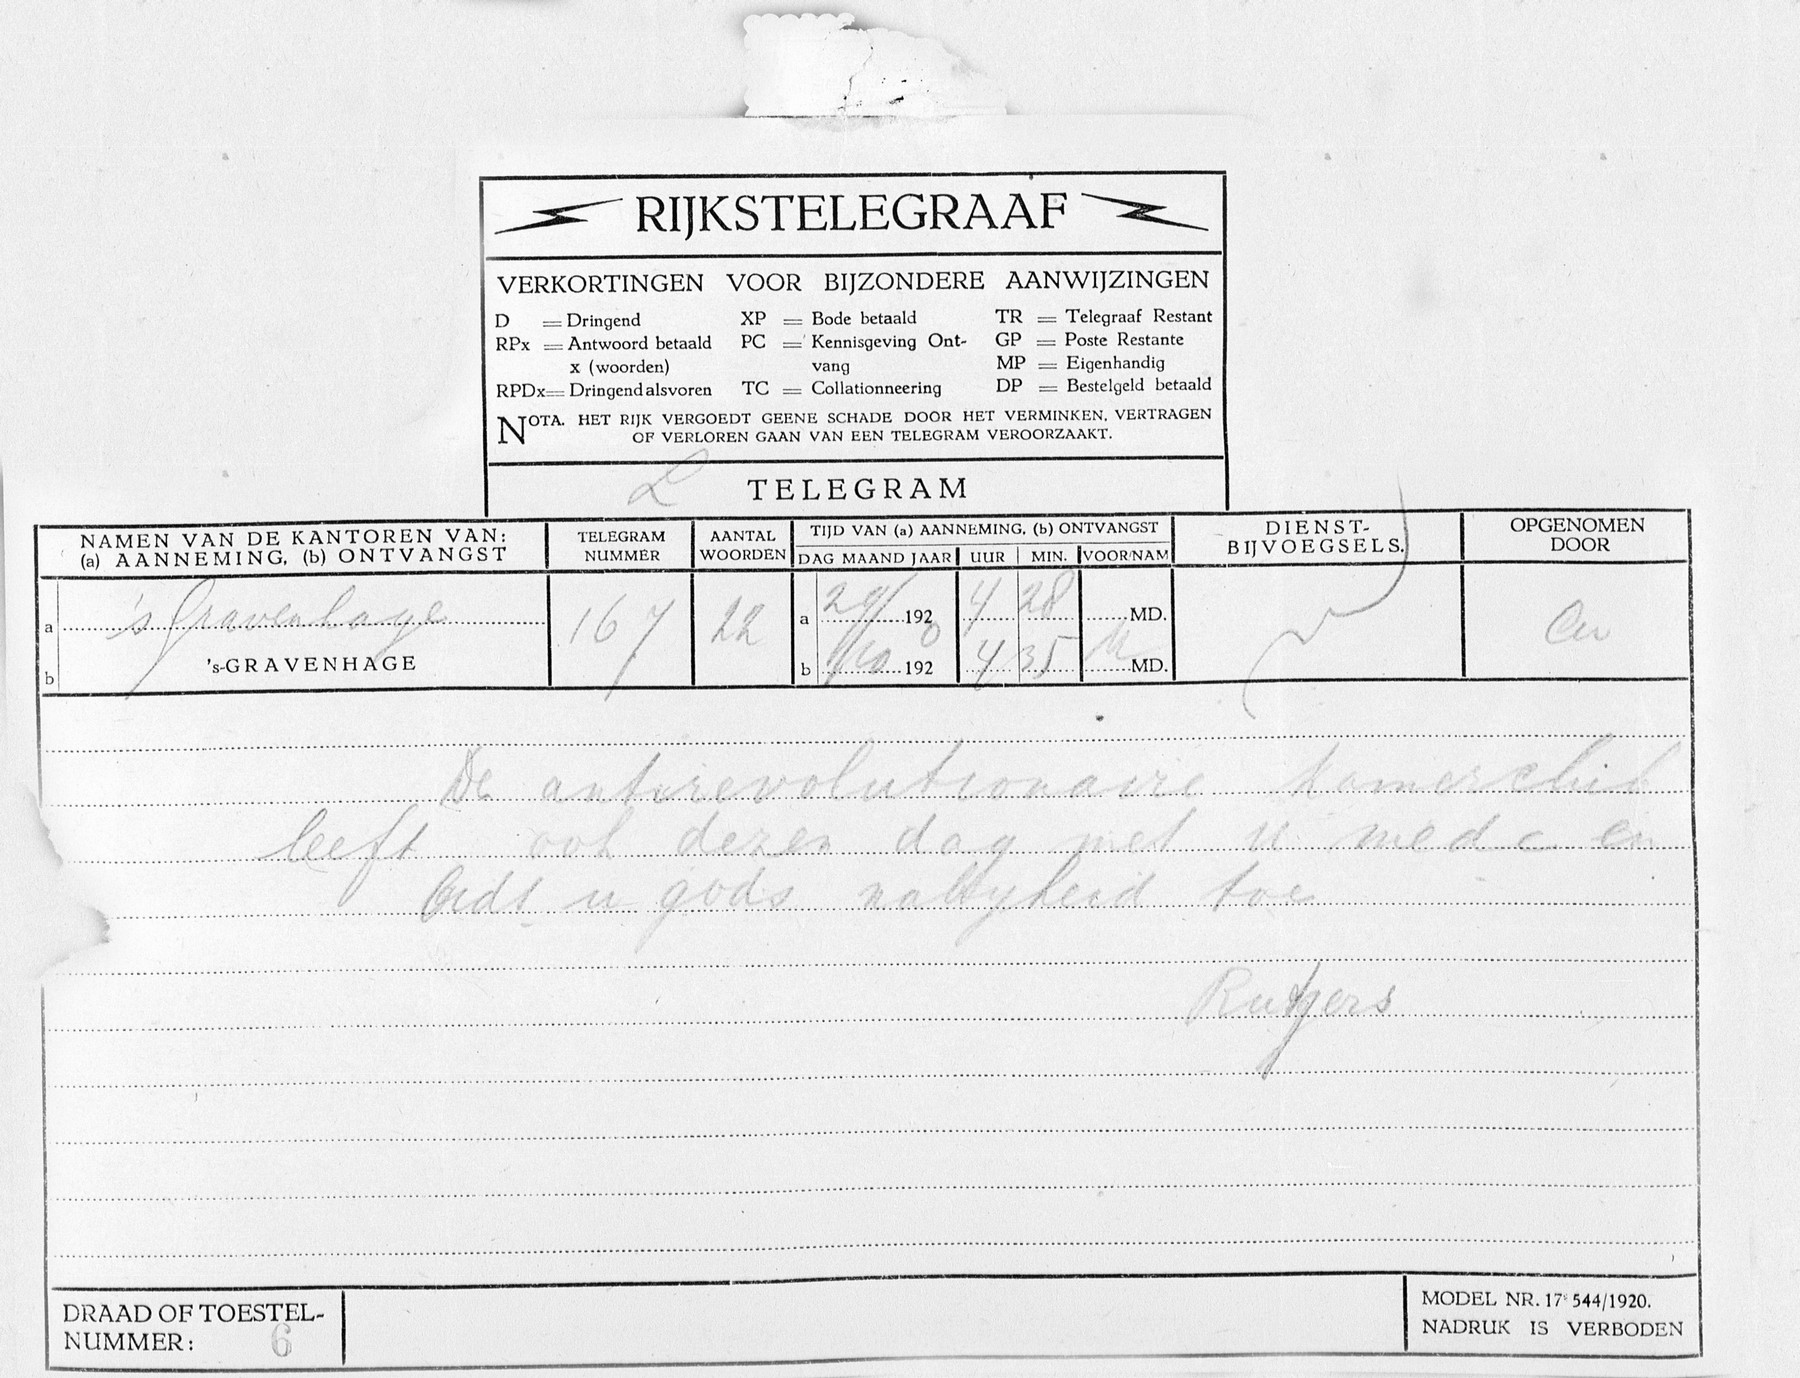 RIJKSTELEGRAAF
VERKORTINGEN VOOR BIJZONDERE AANWIJZINGEN
D = Dringend XP = Bode betaald TR = Telegraaf Restant
RPx = Antwoord betaald PC = Kennisgeving Ont- GP = Poste Restante
x (woorden) vang MP = Eigenhandig
RPDx= Dringend alsvoren TC = Collationneering DP = Bestelgeld betaald
NOTA. HET RIJK VERGOEDT GEENE SCHADE DOOR HET VERMINKEN, VERTRAGEN
OF VERLOREN GAAN VAN EEN TELEGRAM VEROORZAAKT.
L TELEGRAM
NAMEN VAN DE KANTOREN VAN:
(a) AANNEMING, (b) ONTVANGST
TELEGRAM
NUMMER
AANTAL
WOORDEN
TIJD VAN (a) AANNEMING, (b) ONTVANGST
DAG MAAND JAAR UUR MIN. VOOR/NAM
DIENST-
BIJVOEGSELS.
OPGENOMEN
DOOR
a 's Gravenhage 167 22 a 29/ 1920 4 28 MD.
b 's-GRAVENHAGE b /10 192 4 35 MD.
De antirevolutionaire kamerclub
leeft ook dezen dag met u mede en
bidt u gods nabyheid toe
Rutgers
DRAAD OF TOESTEL-
NUMMER: 6
MODEL NR. 17ˢ 544/1920.
NADRUK IS VERBODEN